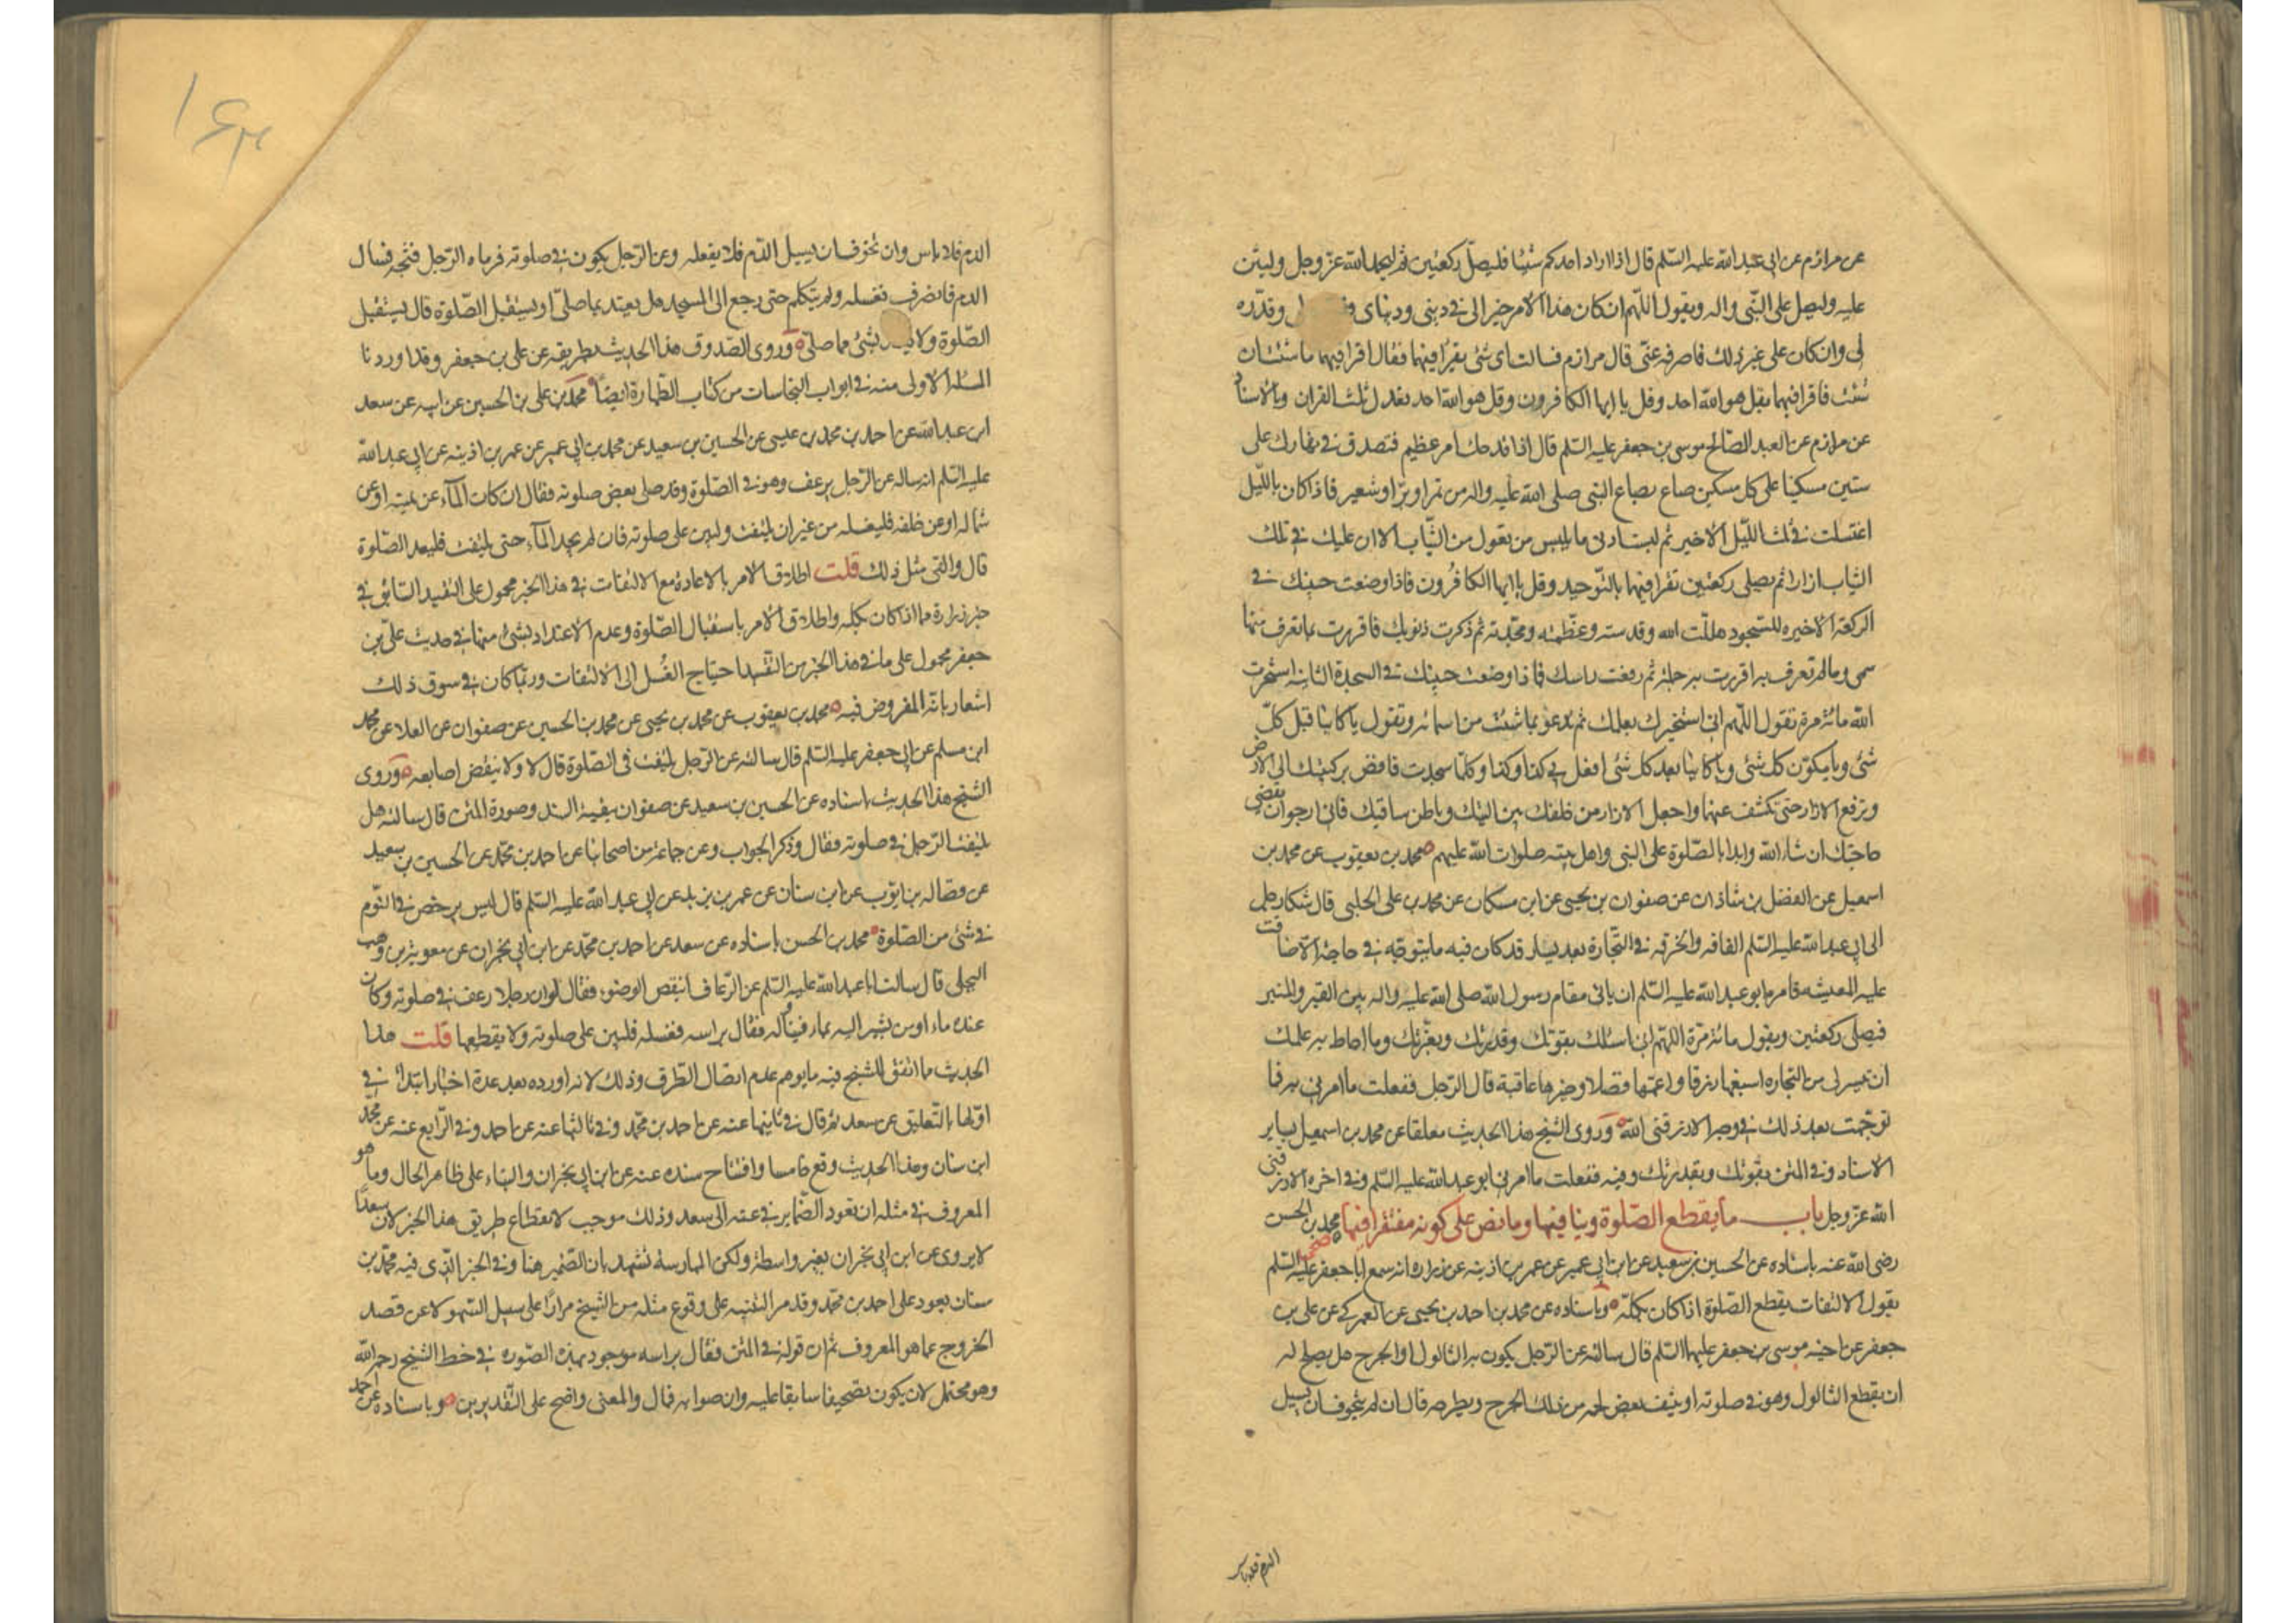 عن مرازم عن ابى عبد الله عليه السّلم قال اذا اراد احدكم شيئا فليصلّ ركعتين ثم ليحمد الله عزّ وجل وليثن
عليه وليصل على النّبى واله ويقول اللّهم ان كان هذا الامر خيرا لى فى دينى ودنياى وقدّره
لى وان كان على غير ذلك فاصرفه عنّى قال مرازم فسالت اى شئ يقرأ فيهما فقال اقرا فيهما ما شئت ان
شئت فاقرا فيهما بقل هو الله احد وقل يا ايها الكافرون وقل هو الله احد تعدل ثلث القران وبالاسناد
عن مرازم عن العبد الصّالح موسى بن جعفر عليه السّلم قال اذا فدحك امر عظيم فتصدق فى نهارك على
ستين مسكينا على كل مسكين صاع بصاع النبى صلى الله عليه واله من تمر او برّ او شعير فاذا كان بالليل
اغتسلت فى ثلث اللّيل الاخير ثم لبست ادنى ما يلبس من تعول من الثّياب الا ان عليك فى تلك
الثياب ازارا ثم تصلى ركعتين تقرا فيهما بالتّوحيد وقل يا ايها الكافرون فاذا وضعت جبينك فى
الركعة الاخيره للسّجود هلّلت الله وقدسته وعظّمته ومجّدته ثم ذكرت ذنوبك فاقررت بما تعرف منها
سمى وما لم تعرف به اقررت به جملة ثم رفعت راسك فاذا وضعت جبينك فى السجدة الثانية استخرت
الله مائة مرة تقول اللّهم انى استخيرك بعلمك ثم تدعو بما شئت من اسمائه وتقول يا كائنا قبل كلّ
شئ ويا مكوّن كل شئ ويا كائنا بعد كل شئ افعل بى كذا وكذا وكلّما سجدت فافض بركبتيك الى الارض
وترفع الازار حتى تكشف عنهما واجعل الازار من خلفك بين اليتيك وباطن ساقيك فانى ارجو ان تقضى
حاجتك ان شاء الله وابدا بالصّلوة على النبى واهل بيته صلوات الله عليهم محمد بن يعقوب عن محمد بن
اسمعيل عن الفضل بن شاذان عن صفوان بن يحيى عن ابن مسكان عن محمد بن على الحلبى قال شكا رجل
الى ابى عبد الله عليه السّلم الفاقه والحرفه فى التّجارة بعد يسار قد كان فيه ما يتوجّه فى حاجة الا ضاقت
عليه المعيشه فامره ابو عبد الله عليه السّلم ان ياتى مقام رسول الله صلى الله عليه واله بين القبر والمنبر
فيصلى ركعتين ويقول مائة مرّة اللّهم انى اسئلك بقوّتك وقدرتك وبعزّتك وما احاط به علمك
ان تيسر لى من التجاره اسبغها رزقا واعمّها فضلا وخيرها عاقبة قال الرّجل ففعلت ما امرنى به فما
توجّهت بعد ذلك فى وجه الا رزقنى الله وروى الشيخ هذا الحديث معلقا عن محمد بن اسمعيل بساير
الاسناد وفى المتن بقوتك وبقدرتك وفيه ففعلت ما امرنى ابو عبد الله عليه السّلم وفى اخره الا رزقنى
الله عزّ وجل باب ما يقطع الصّلوة وينافيها وما نص على كونه مفتقرا فيها محمد بن الحسن
رضى الله عنه باسناده عن الحسين بن سعيد عن ابن ابى عمير عن عمر بن اذينه عن زراره انه سمع ابا جعفر عليه السّلم
يقول الالتفات يقطع الصّلوة اذا كان بكلّه وباسناده عن محمد بن احمد بن يحيى عن العمركى عن على بن
جعفر عن اخيه موسى بن جعفر عليهما السّلم قال سالته عن الرّجل يكون به الثالول او الجرح هل يصلح له
ان يقطع الثالول وهو فى صلوته او ينتف بعض لحمه من ذلك الجرح ويطرحه قال ان لم يتخوف ان يسيل
الدم فلا باس
الدم فلا باس وان تخوف ان يسيل الدّم فلا يفعله وعن الرّجل يكون فى صلوته فرماه الرّجل فشجه فسال
الدم فانصرف فغسله ولم يتكلم حتى رجع الى المسجد هل يعتد بما صلّى او يستقبل الصّلوة قال يستقبل
الصّلوة ولا بشئ مما صلّى وروى الصّدوق هذا الحديث بطريقه عن على بن جعفر وقد اوردنا
المسله الاولى منه فى ابواب النجاسات من كتاب الطهارة ايضا محمد بن على بن الحسين عن ابيه عن سعد
ابن عبد الله عن احمد بن محمد بن عيسى عن الحسين بن سعيد عن محمد بن ابى عمير عن عمر بن اذينه عن ابى عبد الله
عليه السّلم انه ساله عن الرّجل يرعف وهو فى الصّلوة وقد صلى بعض صلوته فقال ان كان المآء عن يمينه او عن
شماله او عن خلفه فليغسله من غير ان يلتفت وليبن على صلوته فان لم يجد المآء حتى يلتفت فليعد الصّلوة
قال والقى مثل ذلك قلت اطلاق الامر بالاعادة مع الالتفات فى هذا الخبر محمول على التقييد السّابق فى
خبر زرارة مما اذا كان بكلّه واطلاق الامر باستقبال الصّلوة وعدم الاعتداد بشئ منها فى حديث علىّ بن
جعفر محمول على ما فى هذا الخبر من التّقييد احتياج الغُسل الى الالتفات وربّما كان فى سوق ذلك
اشعار بانّه المفروض فيه محمد بن يعقوب عن محمد بن يحيى عن محمد بن الحسين عن صفوان عن العلا عن محمد
ابن مسلم عن ابى جعفر عليه السّلم قال سالته عن الرّجل يلتفت فى الصّلوة قال لا ولا ينقض اصابعه وروى
الشّيخ هذا الحديث باسناده عن الحسين بن سعيد عن صفوان ببقية السند وصورة المتن قال سالته هل
يلتفت الرّجل فى صلوته فقال وذكر الجواب وعن جماعة من اصحابنا عن احمد بن محمّد عن الحسين بن سعيد
عن فضاله بن ايّوب عن ابن سنان عن عمر بن يزيد عن ابى عبد الله عليه السّلم قال ليس يرخص فى النّوم
فى شئ من الصّلوة محمد بن الحسن باسناده عن سعد عن احمد بن محمّد عن ابن ابى نجران عن معوية بن وهب
البجلى قال سالت ابا عبد الله عليه السّلم عن الرّعاف اينقض الوضوء فقال لو ان رجلا رعف فى صلوته وكان
عنده ماء او من يشير اليه بماء فيناوله فقال براسه فغسله فليبن على صلوته ولا يقطعها قلت هذا
الحديث مما اتفق للشيخ فيه ما يوهم عدم اتصال الطّرق وذلك لانه اورده بعد عدة اخبار ابتدأ فى
اوّلها بالتّعليق عن سعد ثم قال فى ثانيها عنه عن احمد بن محمّد وفى ثالثها عنه عن احمد وفى الرّابع عنه عن محمّد
ابن سنان وهذا الحديث وقع خامسا وافتتاح سنده عنه عن ابن ابى نجران والبناء على ظاهر الحال وما هو
المعروف فى مثله ان تعود الضّماير فى عنه الى سعد وذلك موجب لانقطاع طريق هذا الخبر لان سعدًا
لا يروى عن ابن ابى نجران بغير واسطة ولكن الممارسة تشهد بان الضّمير هنا وفى الخبر الّذى فيه محمّد بن
سنان يعود على احمد بن محمّد وقد مر التّنبيه على وقوع مثله من الشّيخ مرارًا على سبيل السّهو لا عن قصد
الخروج عما هو المعروف ثم ان قوله فى المتن فقال براسه موجود بهذه الصّوره فى خط الشّيخ رحمه الله
وهو محتمل لان يكون تصحيفا سابقا عليه وان صوابه فمال والمعنى واضح على التّقديرين وباسناده عن احمد